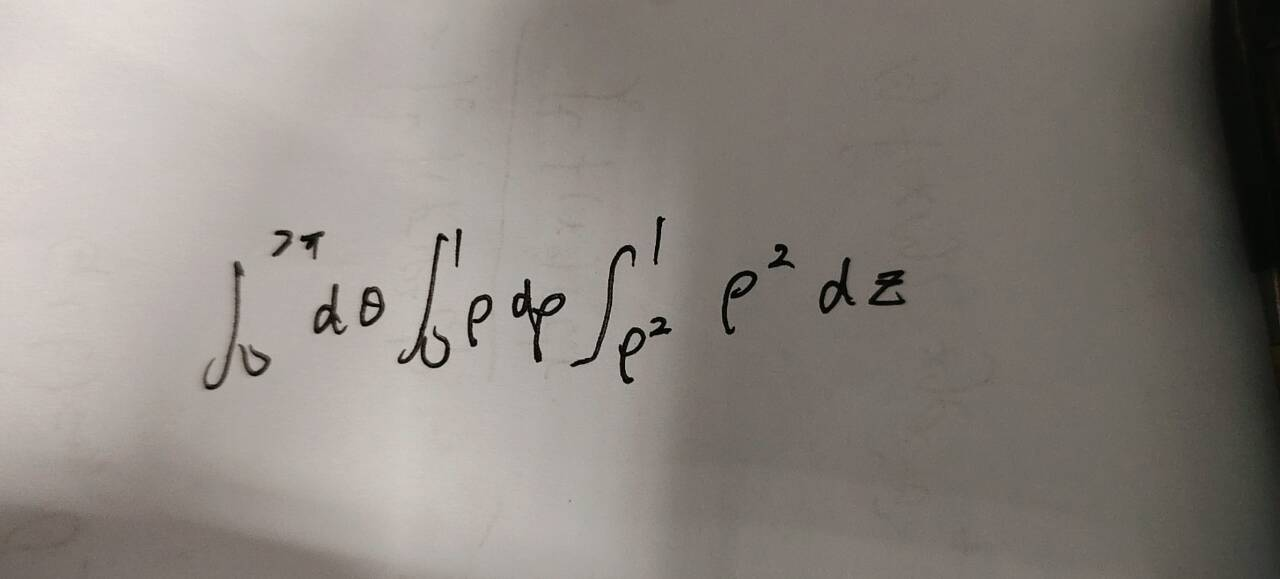 ∫₀^{2π} dθ ∫₀^1 ρ dρ ∫_{ρ²}^1 ρ² dz